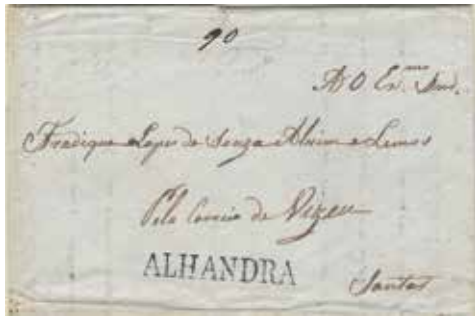 90
A O Ex.mo Snr.
Fradique Lopes de Souza Alvim e Lemos
Pelo Correio de Vizeu
ALHANDRA
Santar